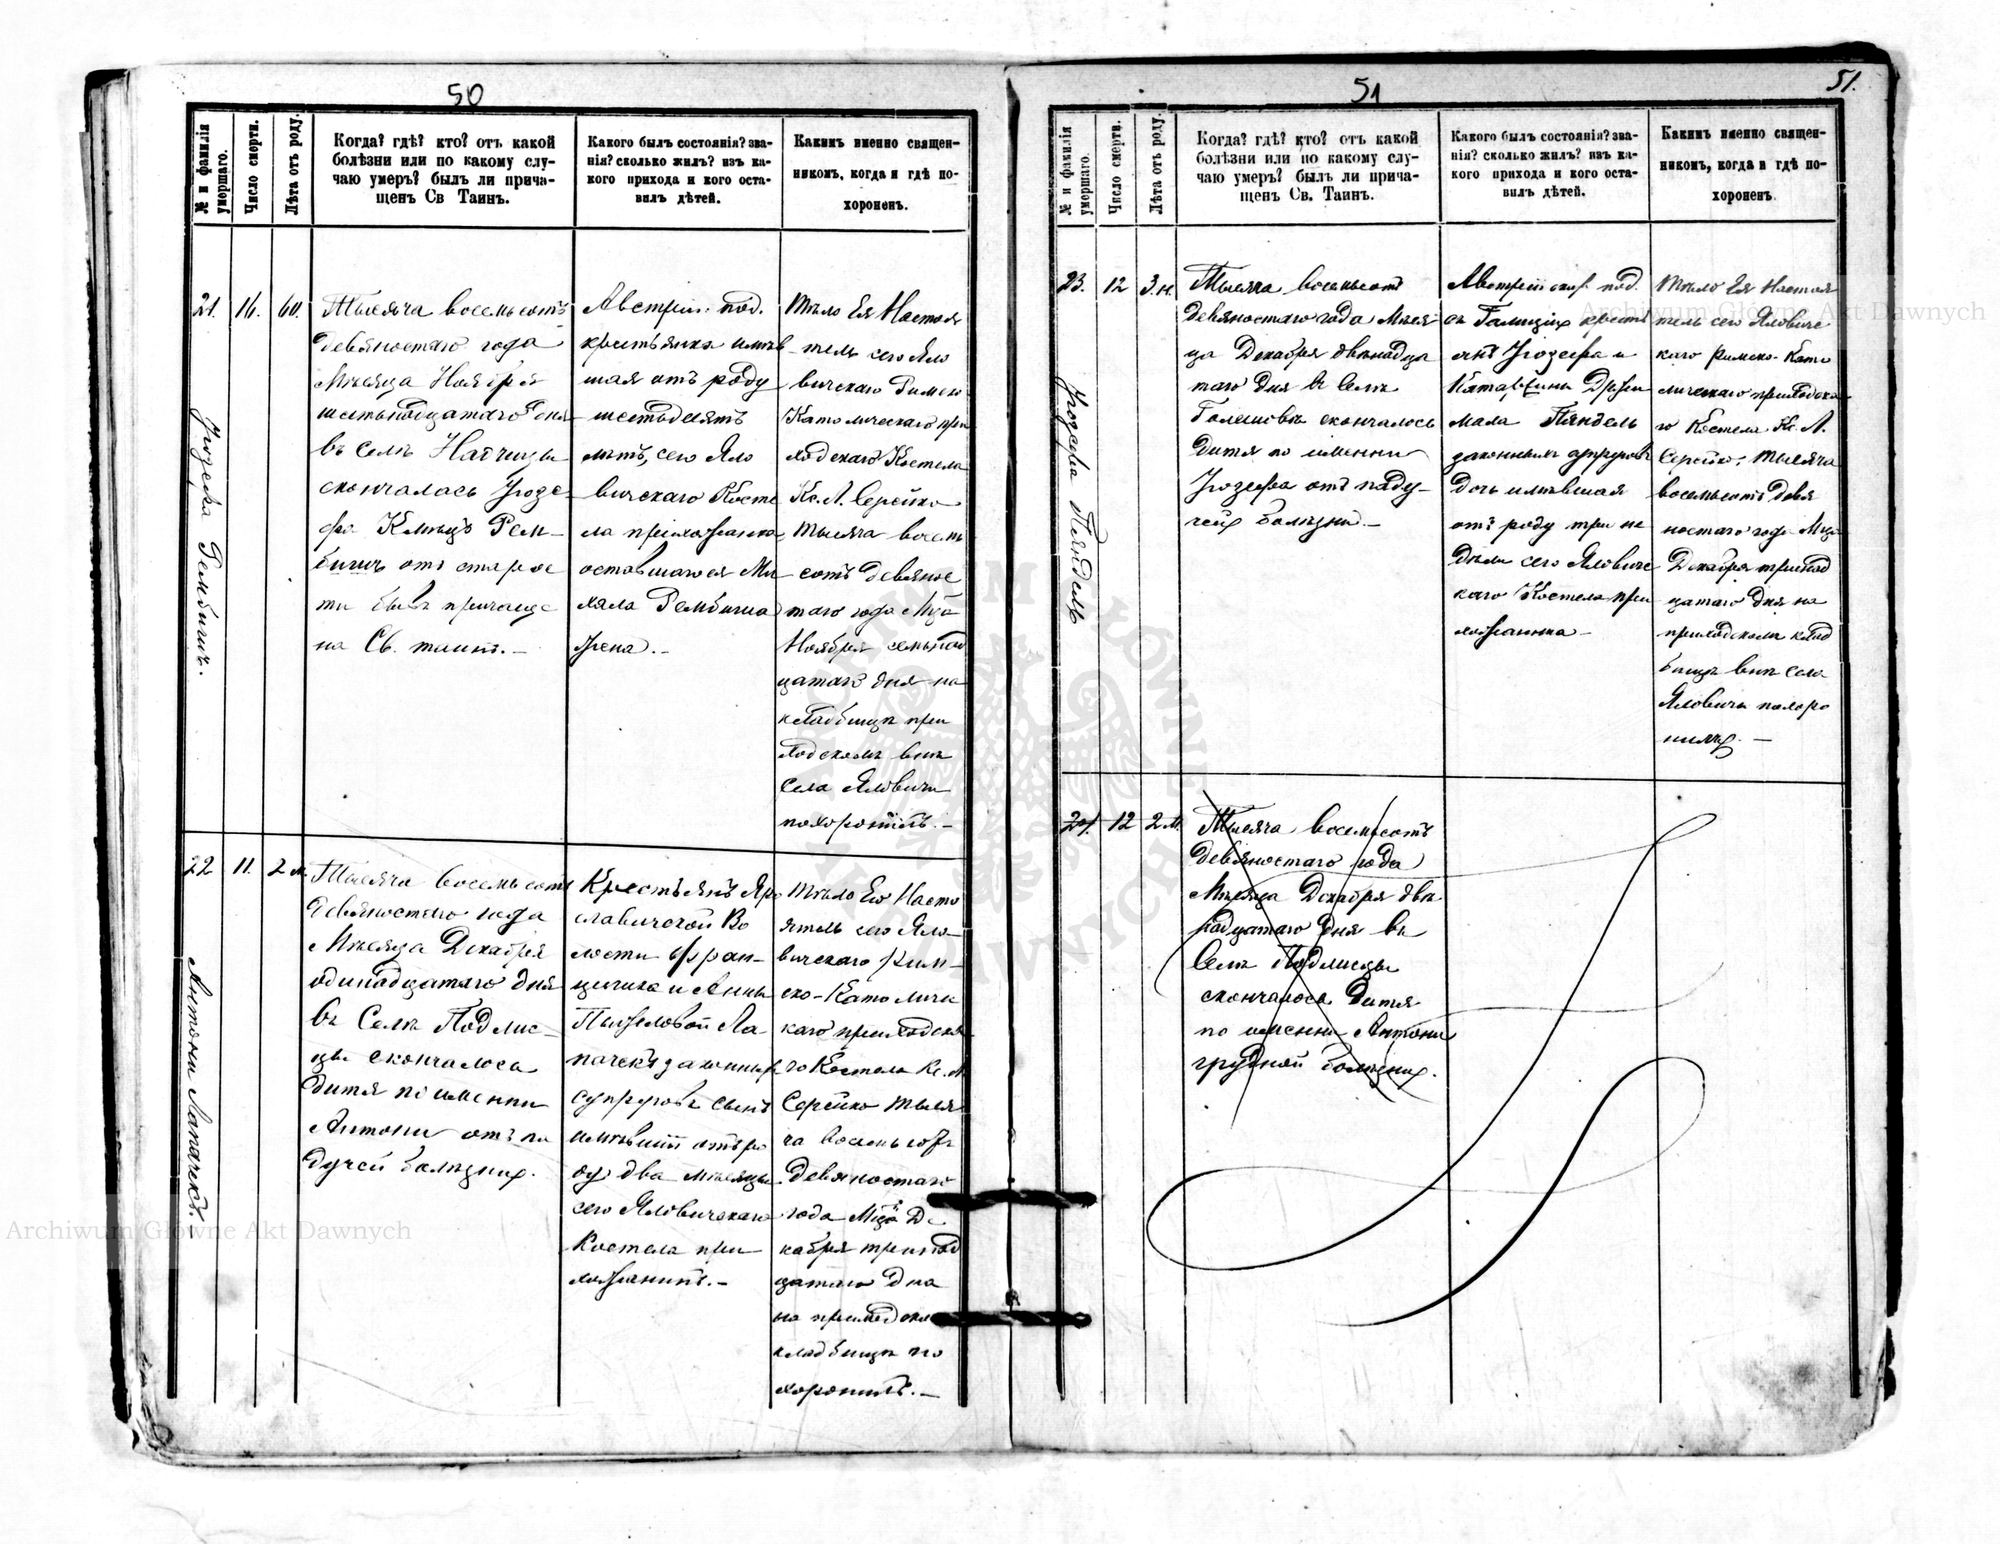 50
№ и фамилія умершаго.
Число смерти.
Лѣта отъ роду.
Когда? гдѣ? кто? отъ какой
болѣзни или по какому слу-
чаю умеръ? былъ ли прича-
щенъ Св Таинъ.
Какого былъ состоянія? зва-
нія? сколько жилъ? изъ ка-
кого прихода и кого оста-
вилъ дѣтей.
Какимъ именно священ-
никомъ, когда и гдѣ по-
хороненъ.
21.
16.
60.
Іюзефа Рембишъ.
Тысяча восемьсотъ
девяностаго года
Мѣсяца Ноября
шестьнадцатаго дня
въ селѣ Натчицы
скончалась Іюзе-
фа Рем-
бишъ отъ старос
ти бывъ причаще
на Св. таинъ.-
Австрій. под.
крестьянка имѣв
шая отъ роду
шестдесятъ
лѣтъ, сего Яло
вичскаго Косте
ла прихожанка
оставшагося Ми
хала Рембиша
жена.-
Тѣло Ея Настоя
-тель сего Яло
вичскаго Римско-
Католическаго при
ходскаго Костела
Кс. А. Серейко
тысяча восемь
сотъ девянос
таго года Мца
Ноября семьнад
цатаго дня на
кладбищѣ при
ходскомъ внѣ
села Яловичи
похоронилъ.-
22
11.
2 м.
Антони Лапачекъ.
Тысяча восемьсотъ
девяностаго года
Мѣсяца Декабря
одинадцатаго дня
въ Селѣ Подлис-
цы скончалося
дитя по имени
Антони отъ па
дучей болѣзни.
Крестьянъ Яро
славичской Во
лости Фран-
цишка и Анны
Ла-
пачекъ законныхъ
супруговъ сынъ
имѣвшій отъ ро
ду два мѣсяцы
сего Яловичскаго
Костела при-
хожанинъ.-
Тѣло Его Насто
ятель сего Яло-
вичскаго Рим-
ско-Католиче
каго приходска
го Костела Кс. А.
Серейко тыся
ча восемьсотъ
девяностаго
года Мца Де
кабря тринад
цатаго дня
на приходском
кладбищѣ по
хоронилъ.-
51
51.
№ и фамилія умершаго.
Число смерти.
Лѣта отъ роду.
Когда? гдѣ? кто? отъ какой
болѣзни или по какому слу-
чаю умеръ? былъ ли прича-
щенъ Св. Таинъ.
Какого былъ состоянія? зва-
нія? сколько жилъ? изъ ка-
кого прихода и кого оста-
вилъ дѣтей.
Какимъ именно священ-
никомъ, когда и гдѣ по-
хороненъ.
23.
12
3. н.
Іюзефа Пендель
Тысяча восемьсотъ
девяностаго года Мѣся
ца Декабря двѣнадца
таго дня въ селѣ
скончалось
дитя по имени
Іюзефа отъ паду-
чей болѣзни.-
Австрійскихъ под.
съ Галиціи кресть
янъ Іюзефа и
Катаржины
Пяндель
законныхъ супруговъ
дочь имѣвшая
отъ роду три не
дѣли сего Яловичс
каго Костела при
хожанка-
Тѣло Ея Настоя
тель сего Яловичс
каго Римско-Като
лическаго приходска
го Костела Кс. А.
Серейко, тысяча
восемьсотъ девя
ностаго года Мца
Декабря тринад
цатаго дня на
приходскомъ клад
бищѣ внѣ села
Яловичи похоро
нилъ.-
24.
12
2 м.
Тысяча восемьсотъ
девяностаго года
Мѣсяца Декабря двѣ
надцатаго дня въ
Селѣ Подлисцы
скончалося дитя
по имени Антони
грудной болѣзни.
Archiwum Główne Akt Dawnych
Archiwum Główne Akt Dawnych